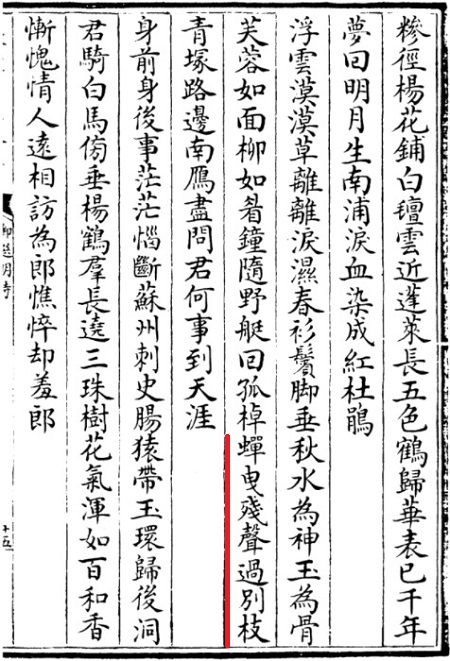 糝徑楊花鋪白璮雲近蓬萊長五色鶴歸華表已千年
夢囘明月生南浦淚血染成紅杜鵑
浮雲漠漠草離離淚濕春衫鬢脚垂秋水為神玉為骨
芙蓉如面柳如眉鐘隨野艇囘孤棹蟬曳殘聲過別枝
青塚路邊南鴈盡問君何事到天涯
身前身後事茫茫惱斷蘇州刺史腸猿帶玉環歸後洞
君騎白馬傍垂楊鶴羣長遶三珠樹花氣渾如百和香
慚愧情人遠相訪為郎憔悴却羞郎
御選明詩
十五